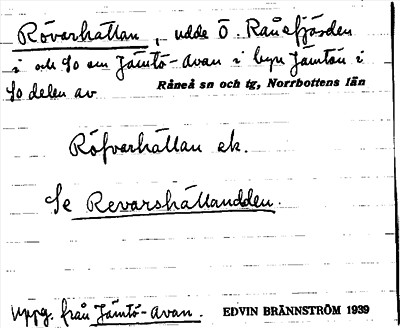 Rövarhättan, udde Ö. Rånefjärden
i och So om Jämtö-Avan i byn Jämtön i
So delen av Råneå sn och tg, Norrbottens län
Röfvarhättan ek.
Se Revarshättaudden.
Uppg. från Jämtö-Avan. EDVIN BRÄNNSTRÖM 1939